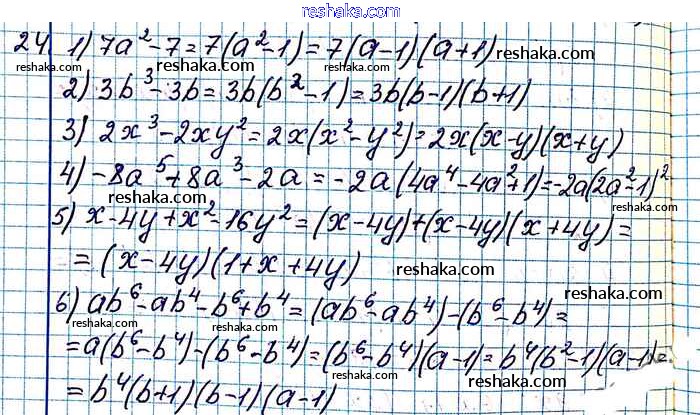 reshaka.com
24 1) 7a² - 7 = 7(a² - 1) = 7(a - 1)(a + 1)
reshaka.com reshaka.com reshaka.com
2) 3b³ - 3b = 3b(b² - 1) = 3b(b - 1)(b + 1)
reshaka.com reshaka.com
3) 2x³ - 2xy² = 2x(x² - y²) = 2x(x - y)(x + y)
reshaka.com
4) -8a⁵ + 8a³ - 2a = -2a(4a⁴ - 4a² + 1) = -2a(2a² - 1)²
reshaka.com reshaka.com reshaka.com
5) x - 4y + x² - 16y² = (x - 4y) + (x - 4y)(x + 4y) =
= (x - 4y)(1 + x + 4y)
reshaka.com reshaka.com
6) ab⁶ - ab⁴ - b⁶ + b⁴ = (ab⁶ - ab⁴) - (b⁶ - b⁴) =
reshaka.com reshaka.com reshaka.com
= a(b⁶ - b⁴) - (b⁶ - b⁴) = (b⁶ - b⁴)(a - 1) = b⁴(b² - 1)(a - 1) =
reshaka.com reshaka.com
= b⁴(b + 1)(b - 1)(a - 1)
reshaka.com